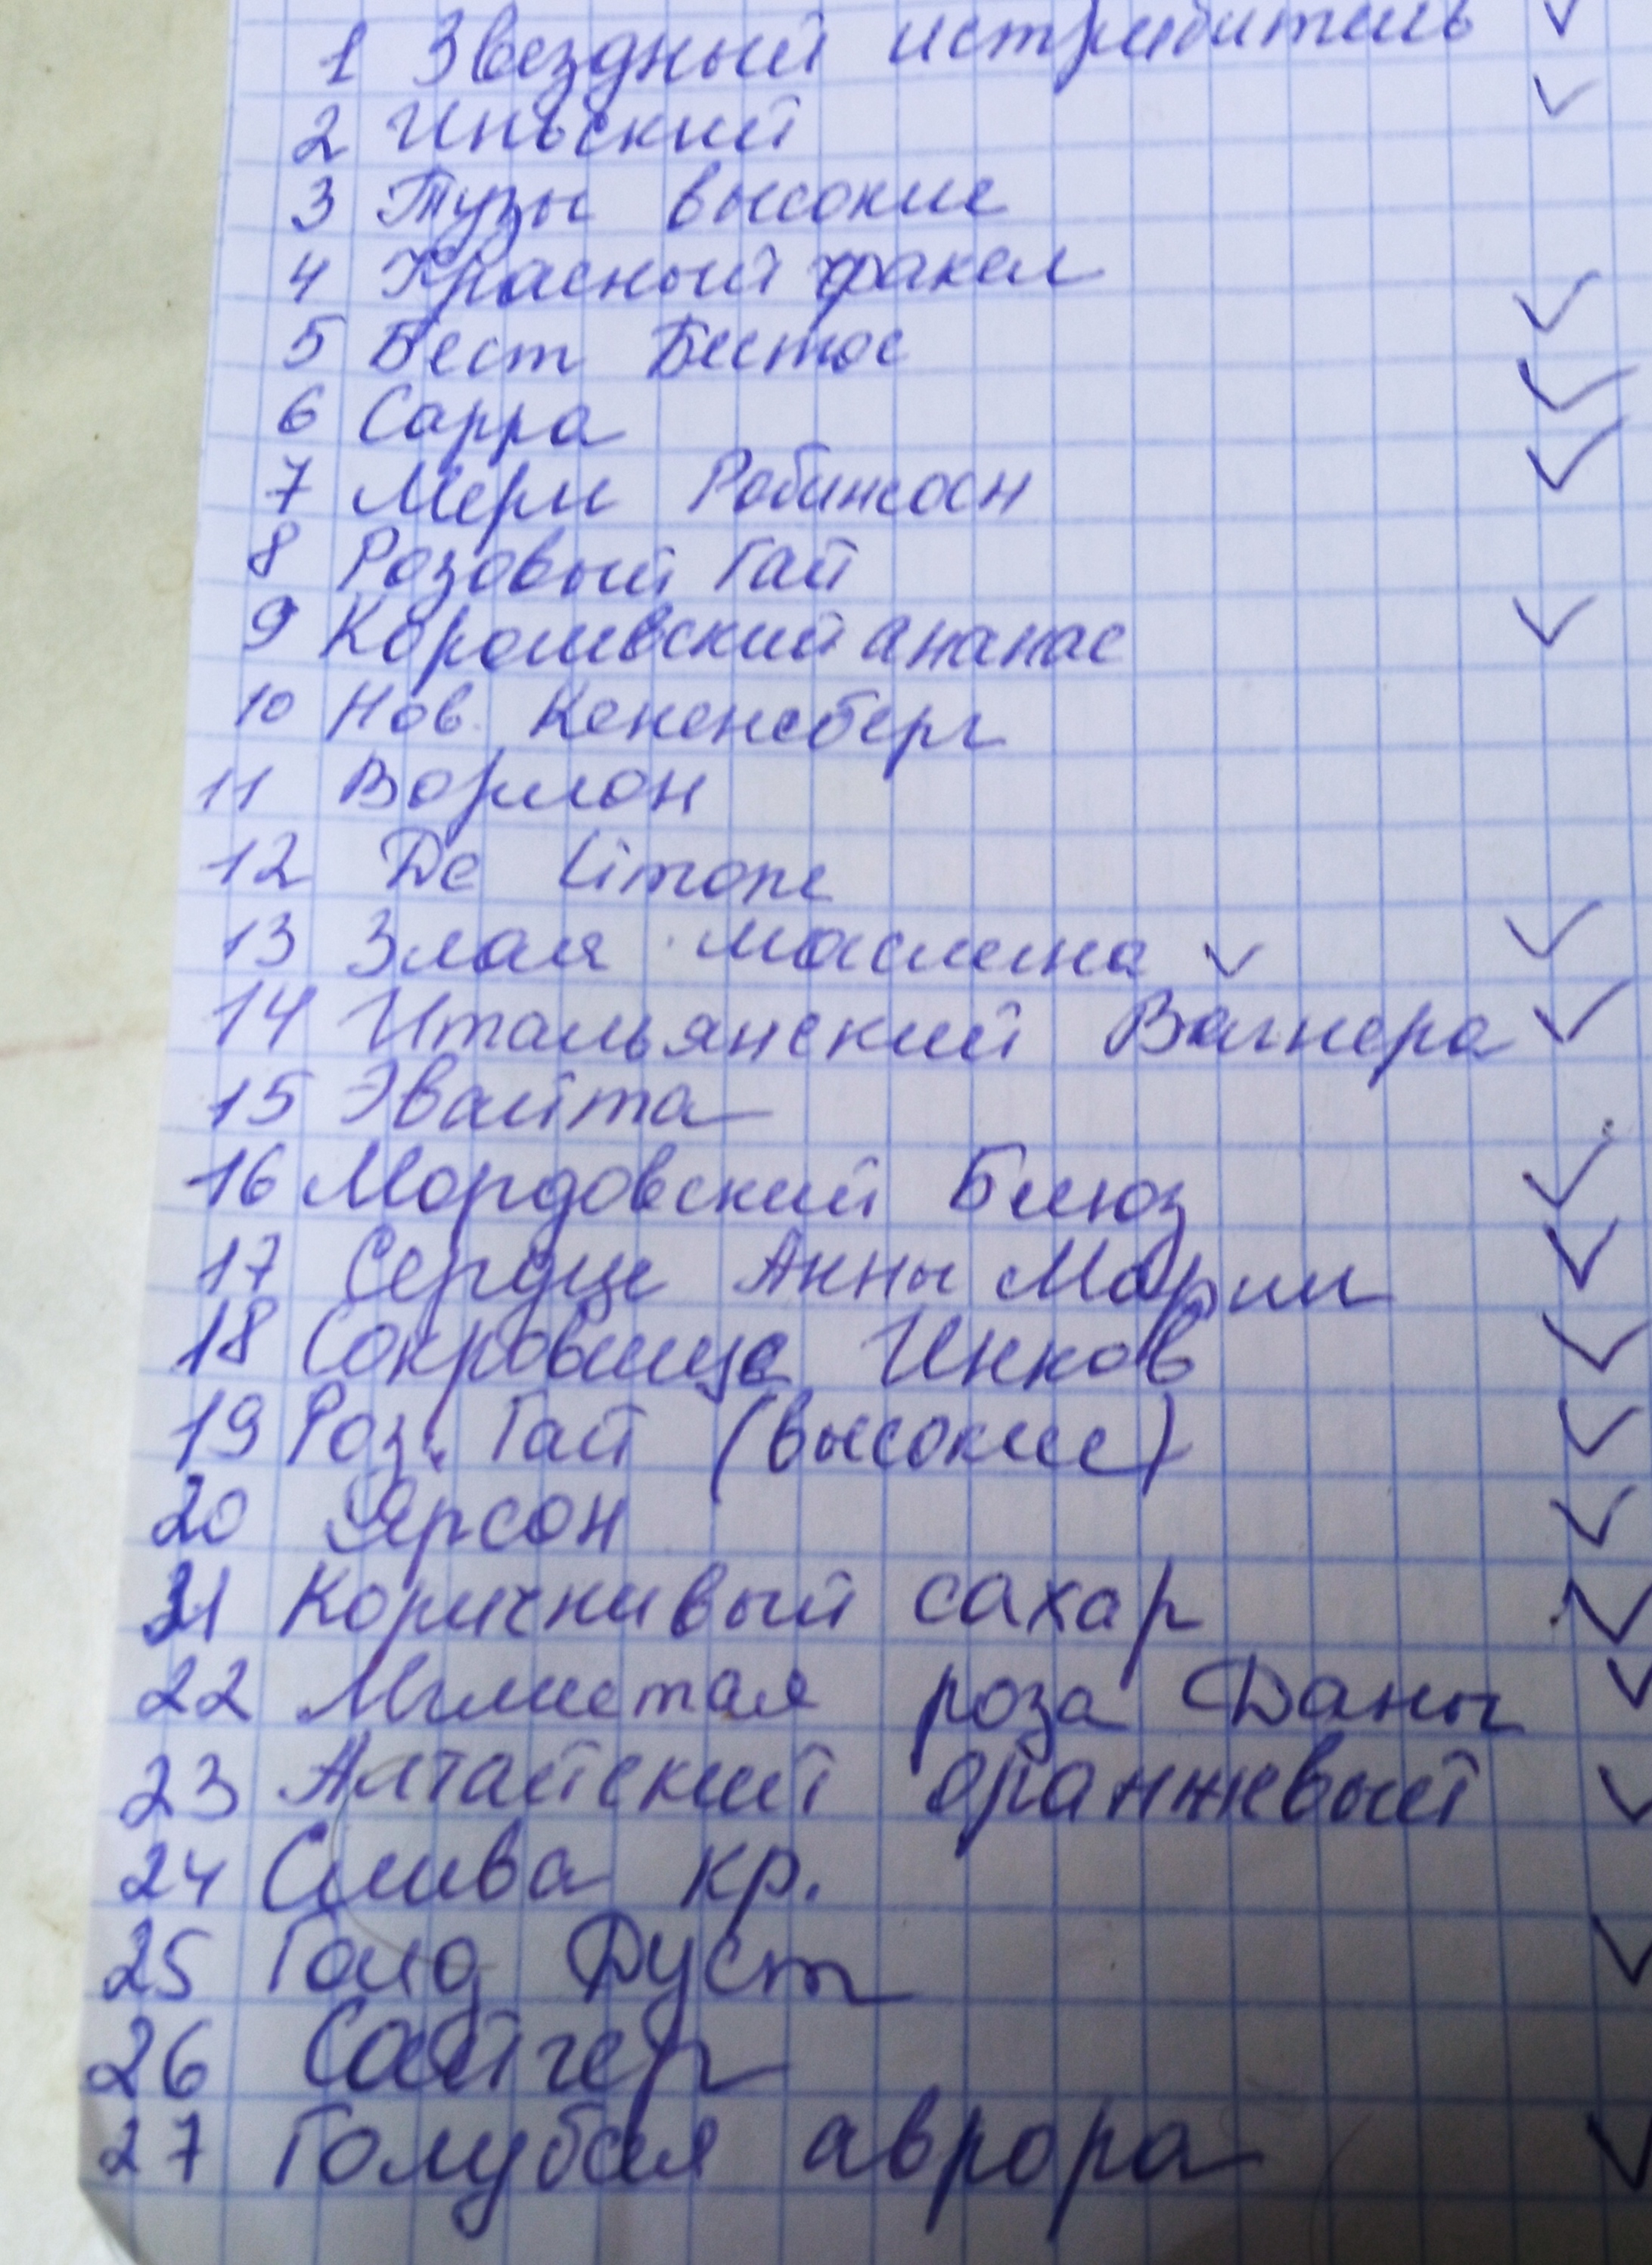 1 Звездный истребитель ✓
2 Иньский ✓
3 Тузы высокие
4 Красный факел
5 Бест Бистос ✓
6 Сарра ✓
7 Мери Робинсон ✓
8 Розовый Гай
9 Короливский ананас ✓
10 Нов. Кененсберг
11 Ворлон
12 De Limone
13 Злая маслина ✓ ✓
14 Итальянский Вагнера ✓
15 Эвайта
16 Мордовский Блюз ✓
17 Сердце Анны Марии ✓
18 Сокровища Инков ✓
19 Роз. Гай (высокие) ✓
20 Ярсон ✓
21 Коричнивый сахар ✓
22 Мглистая роза Даны ✓
23 Алтайский оранжевый ✓
24 Слива кр.
25 Голд Дуст ✓
26 Сайгер
27 Голубая аврора ✓